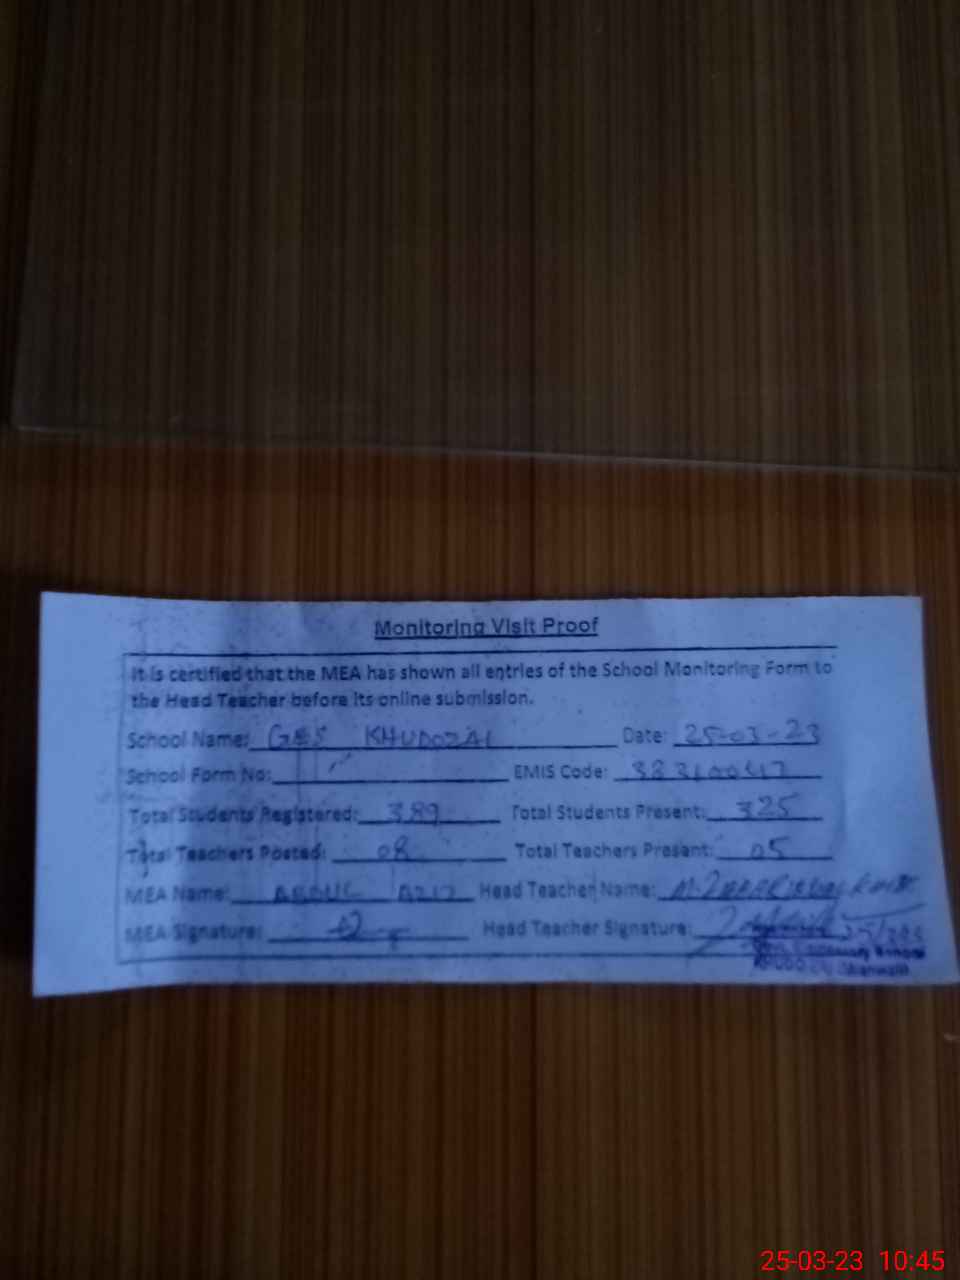 Monitoring Visit Proof
It is certified that the MEA has shown all entries of the School Monitoring Form to
the Head Teacher before its online submission.
School Name: GES KHUDOZAI Date: 25-03-23
School Form No: EMIS Code:
Total Students Registered: 389 Total Students Present: 325
Total Teachers Posted: 08 Total Teachers Present: 05
MEA Name: ABDUL AZIZ Head Teacher Name:
MEA Signature: Head Teacher Signature:
School
25-03-23 10:45